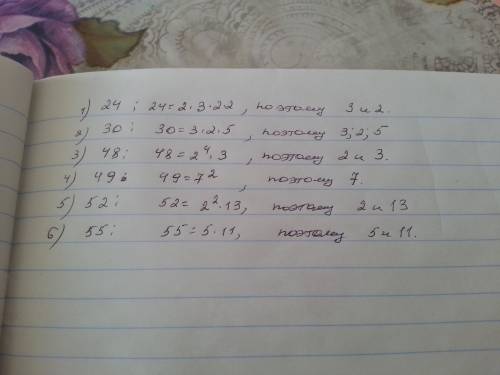 1) 24; 24=2·3·22, поэтому 3 и 2.
2) 30; 30=3·2·5, поэтому 3; 2; 5
3) 48; 48=2⁴·3, поэтому 2 и 3.
4) 49; 49=7², поэтому 7.
5) 52; 52=2²·13, поэтому 2 и 13
6) 55; 55=5·11, поэтому 5 и 11.